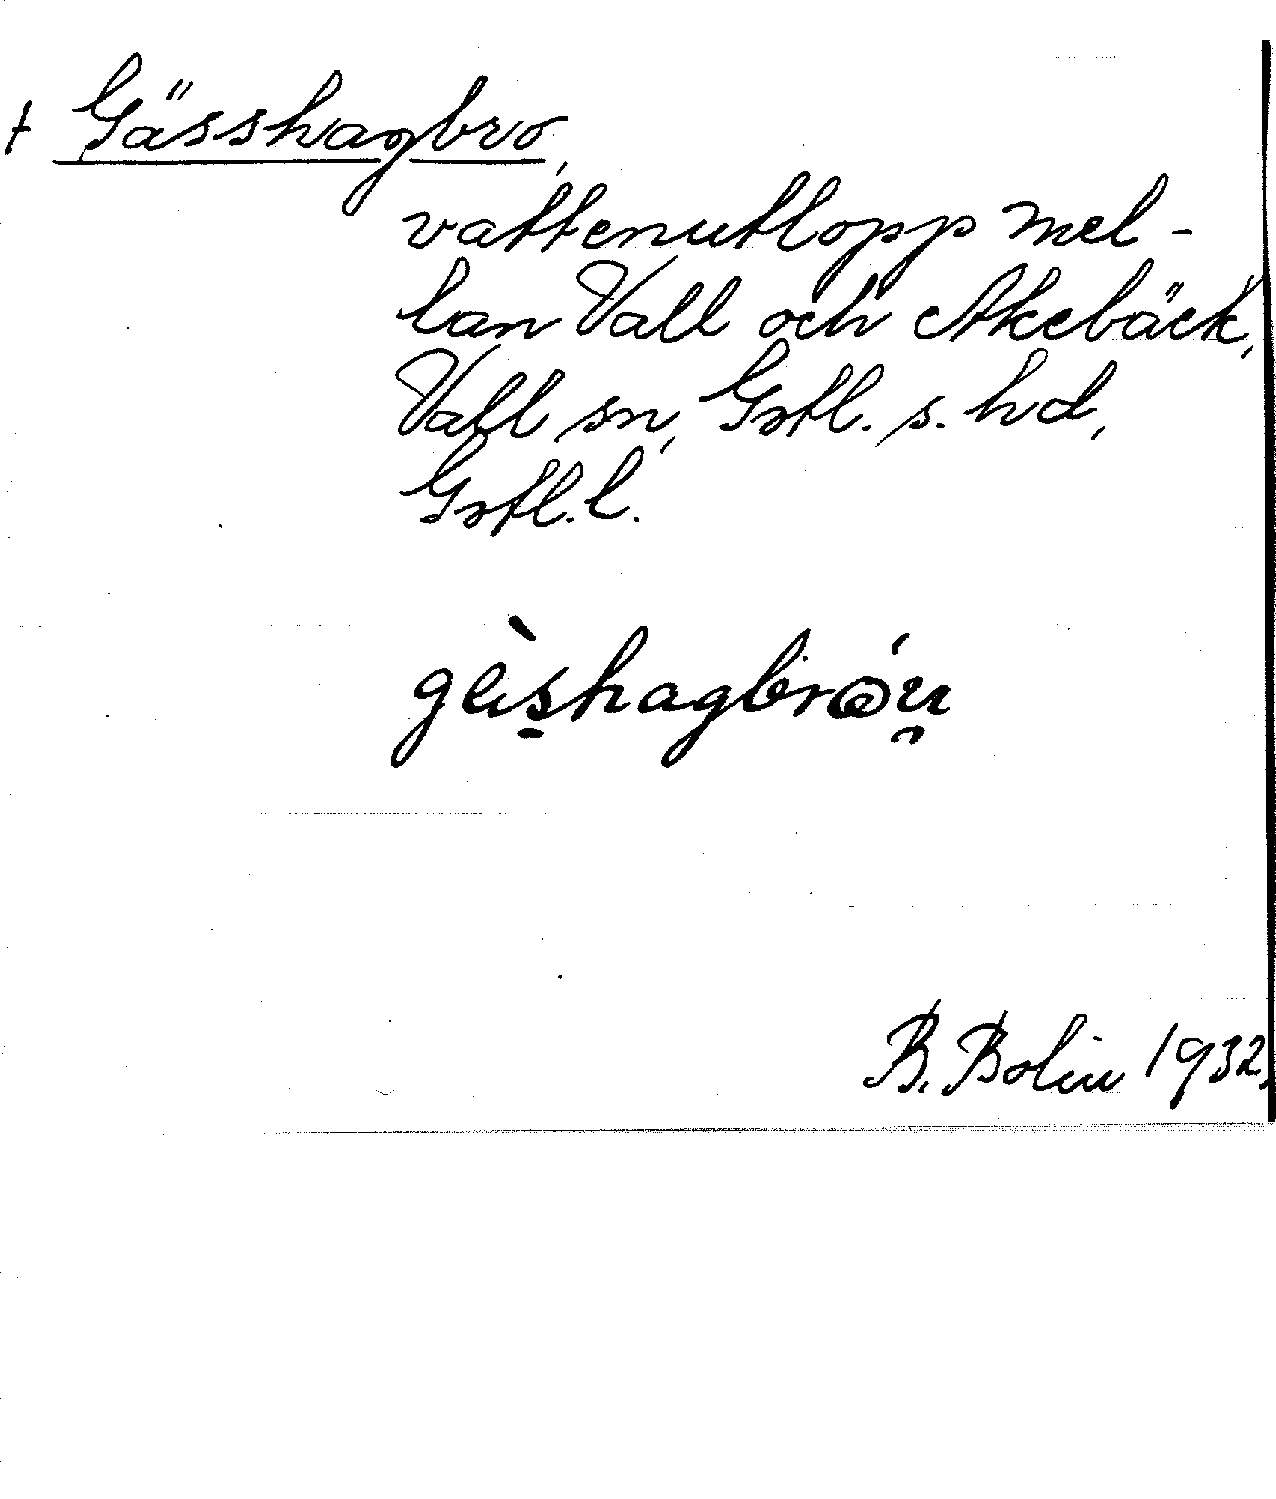 + Gässhagbro,
vattenutlopp mel-
lan Vall och Akebäck,
Vall sn, Gotl. s. hd,
Gotl. l.
B. Bolin 1932.